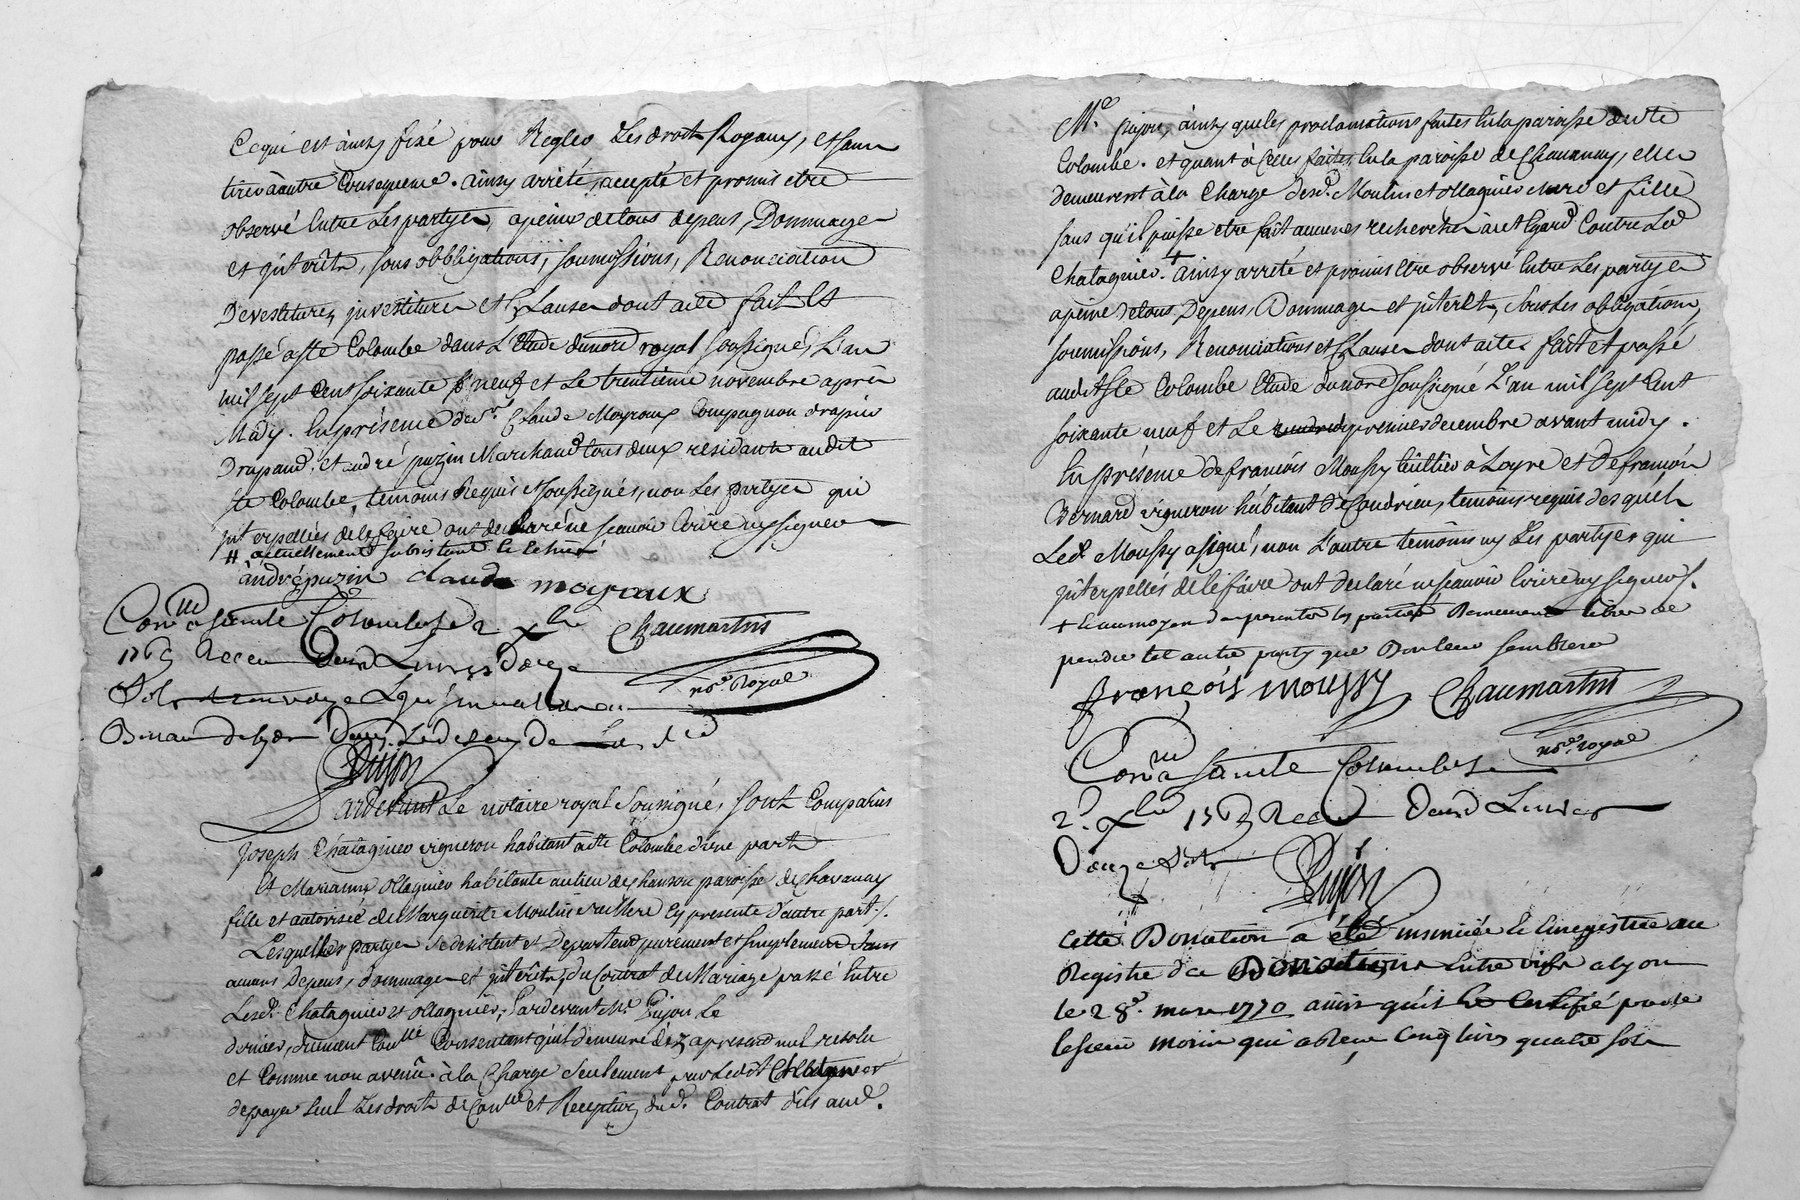 Ce qui est ainsy fixé pour Regler Les droits Royaux, et sans
tirer à autre Consequence. ainsy arrété, accepté et promis etre
observé Entre Les partyes, a peine de tous depens, Dommages
et interêts, sous obbligations, soumissions, Renonciations
Devestitures, investitures et Clauses dont acte fait Et
passé a Ste Colombe dans L'Etude du nore royal soussigné, L'an
mil sept Cent soixante neuf et Le trentieme novembre après
Midy. En présence de sr. Claude Moyroux Compagnon drapier
Drapand, et andré puzin Marchand tous deux residants audit
Ste Colombe, temoins Requis et soussignés, non Les partyes qui
interpellées de le faire ont declarré ne scavoir Ecrire ny signer
# actuellement subsistant
andré puzin claude moyroux
Conlle a sainte Colombe Le 2 Xbre Chaumartin
1769 Receu Deux Livres Douze nore. Royal
Sols
Bureau de lyon
Pujon
Pardevant Le notaire royal Soussigné, sont Comparus
Joseph Chatagnier vigneron habitant a Ste Colombe d'une part
Et Marianne ollagnier habitante au lieu de chanson paroisse de Chavanay
fille et autorisée de Marguerite Moulin sa Mere Cy presente d'autre part./.
Lesquelles partyes se desistent et Departent purement et simplement sans
aucuns Depens, dommages et interêts, du Contrat de Mariage passé Entre
Lesd. Chatagnier et ollagnier, Pardevant Me. Pujon Le
dernier, duement Conllé Consentant qu'il demeure dèz apresent nul resolu
et Comme non avenû. à la Charge seulement par Ledit Chatagnier
de payer seul Les droits de Conlle et Reception dud. Contrat dûs aud.
Me. Pujon, ainsy que les proclamations faites En la paroisse de Ste
Colombe. et quant à Celles faites En la paroisse de Chavanay, elles
demeurent à la Charge desd. Moulin et ollagnier mere et fille
sans qu'il puisse etre fait aucunes recherches à cet Egard Contre Led
Chatagnier. + ainsy arrété et promis Etre observé Entre Les partyes
a peine de tous Depens, Dommages et interets, sous Les obligations,
soumissions, Renonciations et Clauses dont acte. fait et passé
audit Ste Colombe Etude du nore soussigné L'an mil sept Cent
soixante neuf et Le premier decembre avant midy.
En présence de francois Moussy tuillier à Loyre et de francois
Bernard vigneron habitant de Condrieu, temoins requis desquels
Led. Moussy a signé, non L'autre temoins ny Les partyes qui
interpellés de le faire ont declaré ne scavoir Ecrire ny signer./.
+ et au moyen des presentes les parties Demeurent libres de
prendre tel autre party que Bon leur semblera
francois moussy Chaumartin
nore. royal
Conlle a sainte Colombe Le
2. Xbre 1769 Receu Deux Livres
Douze Sols
Pujon
Cette Donation à été insinuée Et Enregistrée au
Registre des Donations Entre vifs a lyon
le 28e. mars 1770 ainsi qu'il Est Certifié par le
le sieur morin qui a receu Cinq livres quatre sols